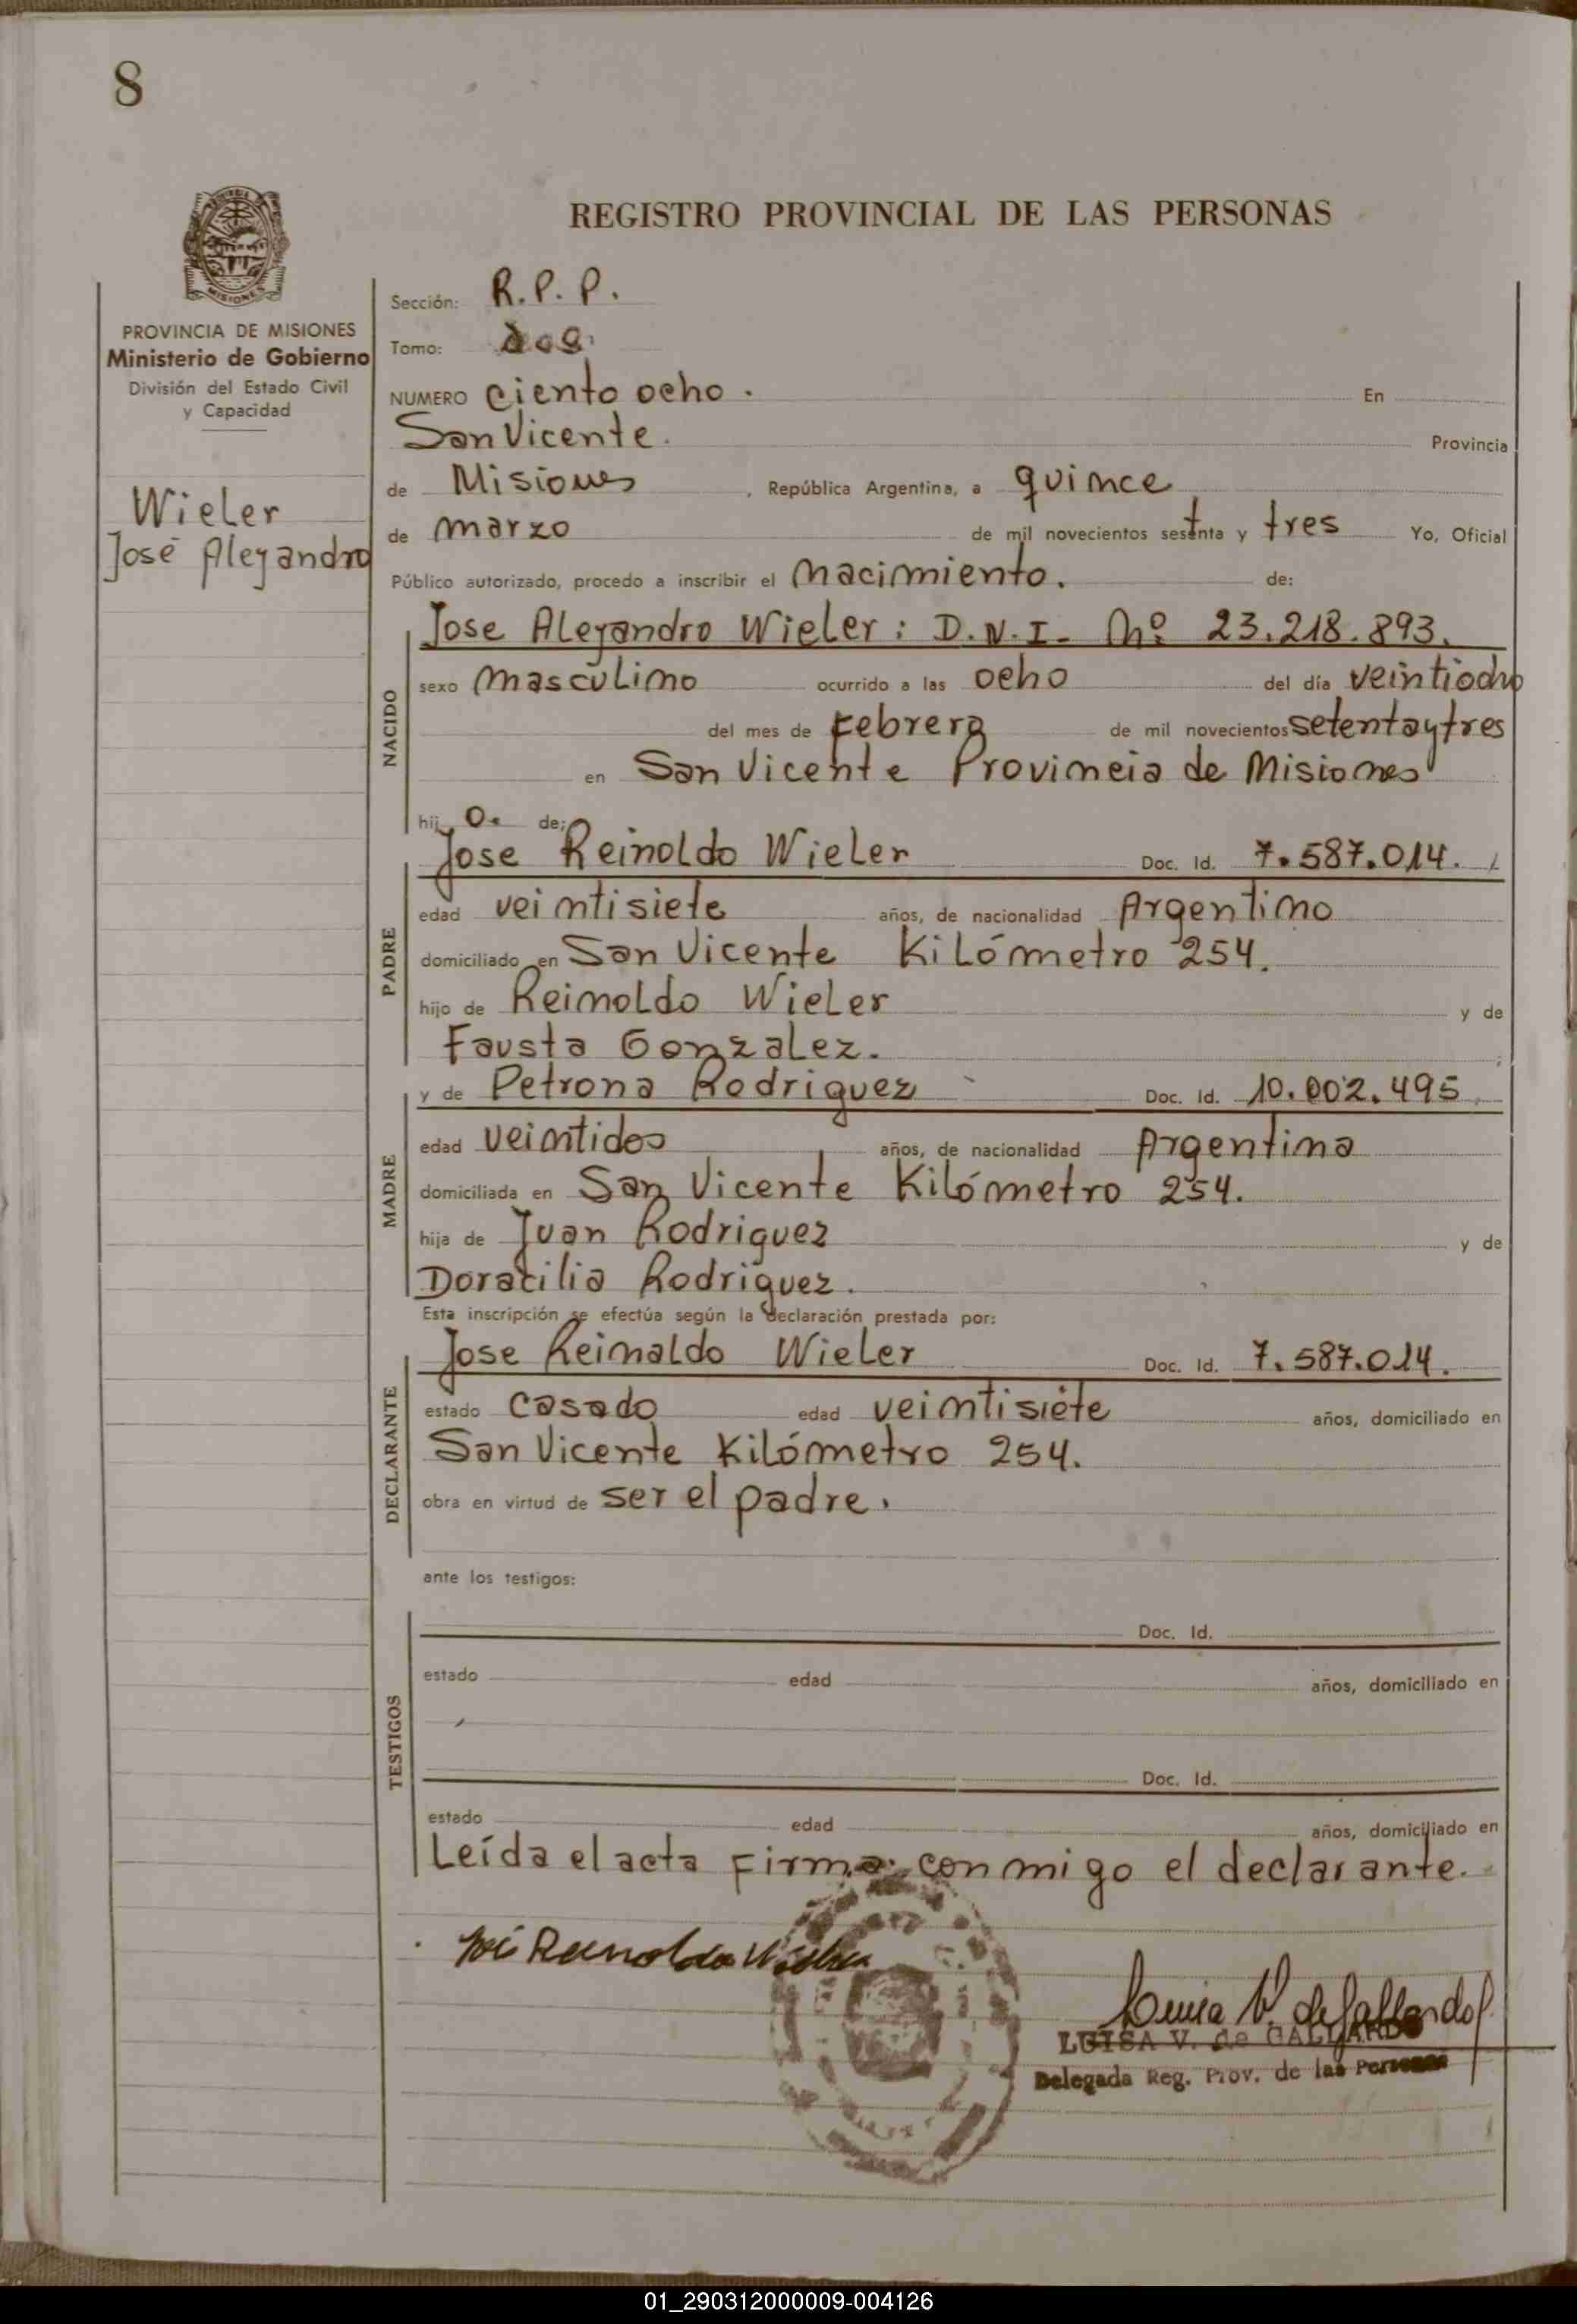 8
REGISTRO PROVINCIAL DE LAS PERSONAS
MISIONES
PROVINCIA DE MISIONES
Ministerio de Gobierno
División del Estado Civil
y Capacidad
Wieler
José Alejandro
Sección: R.P.P.
Tomo: dos
NUMERO Ciento ocho. En
San Vicente. Provincia
de Misiones, República Argentina, a quince
de marzo de mil novecientos setenta y tres Yo, Oficial
Público autorizado, procedo a inscribir el nacimiento. de:
NACIDO
Jose Alejandro Wieler: D.N.I. Nº 23.218.893.
sexo masculino ocurrido a las ocho del día veintiocho
del mes de febrero de mil novecientos setenta y tres
en San Vicente Provincia de Misiones
hij o. de:
PADRE
Jose Reinoldo Wieler Doc. Id. 7.587.014.
edad veintisiete años, de nacionalidad Argentino
domiciliado en San Vicente Kilómetro 254.
hijo de Reinoldo Wieler y de
Fausta Gonzalez.
MADRE
y de Petrona Rodriguez Doc. Id. 10.002.495
edad veintidos años, de nacionalidad Argentina
domiciliada en San Vicente Kilómetro 254.
hija de Juan Rodriguez y de
Doracilia Rodriguez.
Esta inscripción se efectúa según la declaración prestada por:
DECLARANTE
Jose Reinaldo Wieler Doc. Id. 7.587.014.
estado casado edad veintisiete años, domiciliado en
San Vicente Kilómetro 254.
obra en virtud de ser el padre.
ante los testigos:
TESTIGOS
Doc. Id.
estado edad años, domiciliado en
Doc. Id.
estado edad años, domiciliado en
Leída el acta firma conmigo el declarante.
José Reinoldo Wieler
Luisa V. de Gallardo
LUISA V. de GALLARDO
Delegada Reg. Prov. de las Personas
01_290312000009-004126